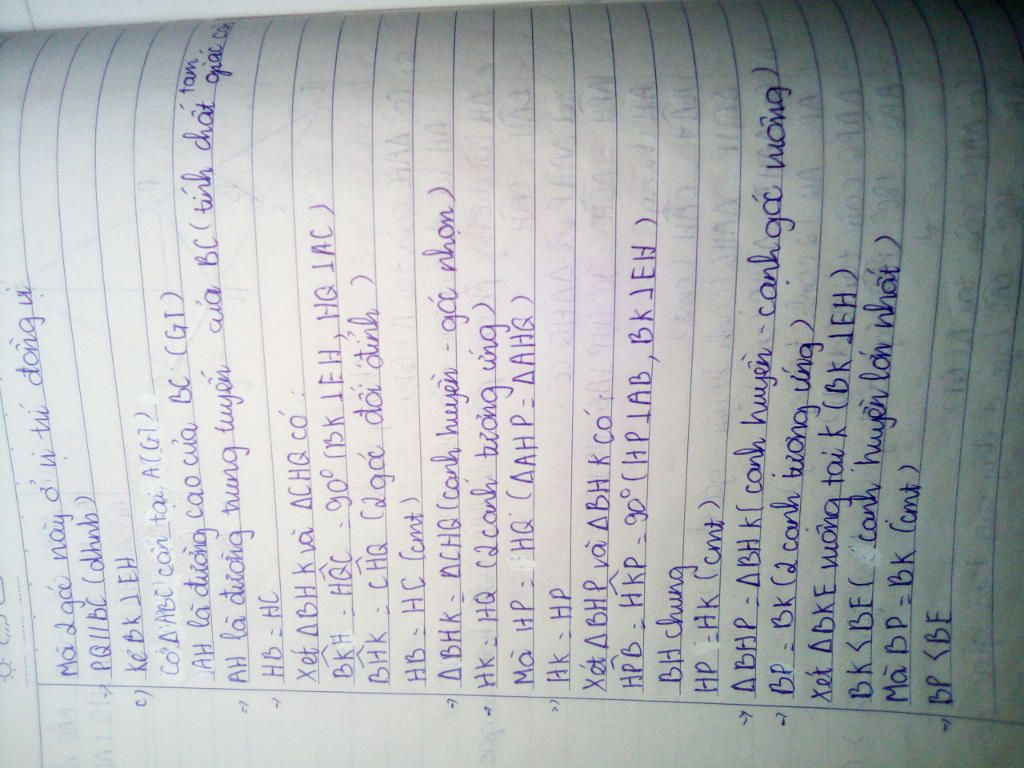 Mà 2 góc này ở vị trí đồng vị
→ PQ//BC (dhnb)
c) Kẻ BK⊥EH
Có ΔABC cân tại A(GT)
AH là đường cao của BC (GT)
→ AH là đường trung tuyến của BC (tính chất tam giác cân
→ HB = HC
Xét ΔBHK và ΔCHQ có:
BK̂H = HQ̂C = 90° (BK⊥EH, HQ⊥AC)
BĤK = CĤQ (2 góc đối đỉnh)
HB = HC (cmt)
→ ΔBHK = ΔCHQ (cạnh huyền - góc nhọn)
→ HK = HQ (2 cạnh tương ứng)
Mà HP = HQ (ΔAHP = ΔAHQ)
→ HK = HP
Xét ΔBHP và ΔBHK có:
HP̂B = HK̂P = 90° (HP⊥AB, BK⊥EH)
BH chung
HP = HK (cmt)
→ ΔBHP = ΔBHK (cạnh huyền - cạnh góc vuông)
→ BP = BK (2 cạnh tương ứng)
Xét ΔBKE vuông tại K (BK⊥EH)
BK < BE (cạnh huyền lớn nhất)
Mà BP = BK (cmt)
→ BP < BE